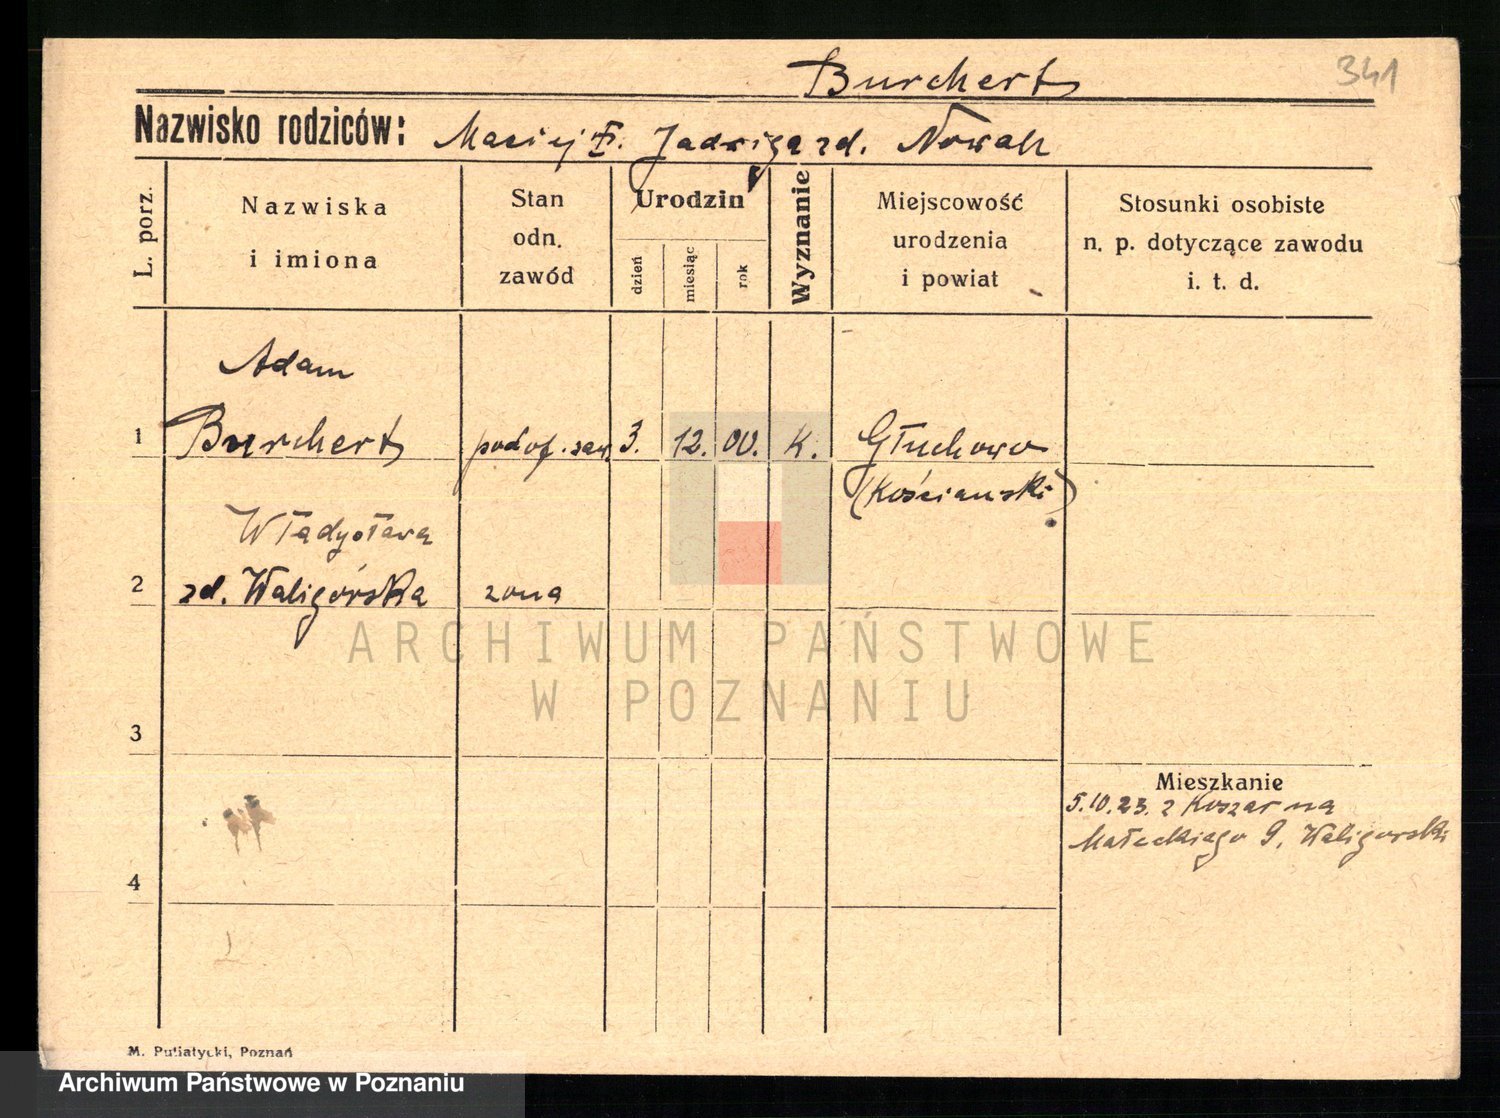 Burchert 341
Nazwisko rodziców: Maciej i Jadwiga zd. Nowak
L. porz.
Nazwiska
i imiona
Stan
odn.
zawód
Urodzin
dzień
miesiąc
rok
Wyznanie
Miejscowość
urodzenia
i powiat
Stosunki osobiste
n. p. dotyczące zawodu
i. t. d.
Adam
1 Burchert podof. zaw. 3. 12. 00. K. Głuchowo
(Kościański)
Władysława
2 zd. Waligórska żona
ARCHIWUM PAŃSTWOWE
W POZNANIU
3
Mieszkanie
5.10.23. z Koszar na
Małeckiego 9, Waligorski
4
M. Putiatycki, Poznań
Archiwum Państwowe w Poznaniu